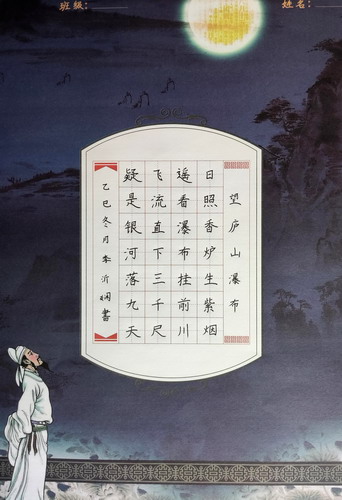 班级:
姓名:
望庐山瀑布
日照香炉生紫烟
遥看瀑布挂前川
飞流直下三千尺
疑是银河落九天
乙巳冬月李沂書